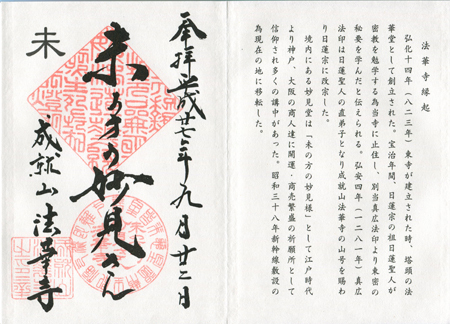 法華寺縁起
弘化十四年（八二三年）東寺が建立された時、塔頭の法
華堂として創立された。宝治年間、日蓮宗の祖日蓮聖人が
密教を勉学する為当寺に止住し、別当真広法印より東密の
秘要を学んだと伝えられる。弘安四年（一二八一年）真広
法印は日蓮聖人の直弟子となり成就山法華寺の山号を賜わ
り日蓮宗に改宗した。
境内にある妙見堂は「未の方の妙見様」として江戸時代
より神戸、大阪の商人達に開運・商売繁盛の祈願所として
信仰され多くの講中があった。昭和三十八年新幹線敷設の
為現在の地に移転した。
奉拝 平成廿七年九月廿二日
未の方の妙見さん
成就山 法華寺
未